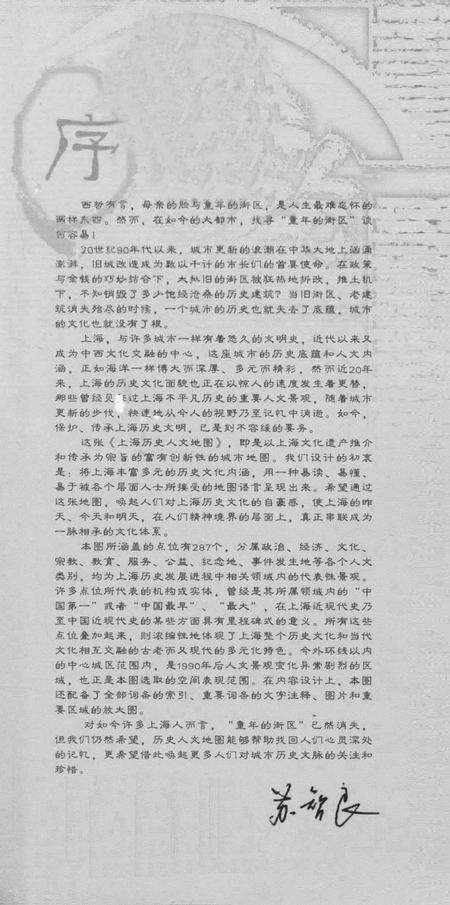 序
西哲有言，母亲的脸与童年的街区，是人生最难忘怀的
两样东西。然而，在如今的大都市，找寻“童年的街区”谈
何容易！
20世纪90年代以来，城市更新的浪潮在中华大地上汹涌
澎湃，旧城改造成为数以千计的市长们的首要使命。在政策
与金钱的巧妙结合下，大批旧的街区被狂热地拆改，推土机
下，不知销毁了多少饱经沧桑的历史建筑？当旧街区、老建
筑消失殆尽的时候，一个城市的历史也就失去了底蕴，城市
的文化也就没有了根。
上海，与许多城市一样有着悠久的文明史，近代以来又
成为中西文化交融的中心，这座城市的历史底蕴和人文内
涵，正如海洋一样博大而深厚、多元而精彩，然而近20年
来，上海的历史文化面貌也正在以惊人的速度发生着更替，
那些曾经见 过上海不平凡历史的重要人文景观，随着城市
更新的步伐，快速地从今人的视野乃至记忆中消逝。如今，
保护、传承上海历史文明，已是刻不容缓的要务。
这张《上海历史人文地图》，即是以上海文化遗产推介
和传承为宗旨的富有创新性的城市地图。我们设计的初衷
是：将上海丰富多元的历史文化内涵，用一种易读、易懂、
易于被各个层面人士所接受的地图语言呈现出来。希望通过
这张地图，唤起人们对上海历史文化的自豪感，使上海的昨
天、今天和明天，在人们精神境界的层面上，真正串联成为
一脉相承的文化体系。
本图所涵盖的点位有287个，分属政治、经济、文化、
宗教、教育、服务、公益、纪念地、事件发生地等各个人文
类别，均为上海历史发展进程中相关领域内的代表性景观。
许多点位所代表的机构或实体，曾经是其所属领域内的“中
国第一”或者“中国最早”、“最大”，在上海近现代史乃
至中国近现代史的某些方面具有里程碑式的意义。所有这些
点位叠加起来，则浓缩性地体现了上海整个历史文化和当代
文化相互交融的古老而又现代的多元化特色。今外环线以内
的中心城区范围内，是1990年后人文景观变化异常剧烈的区
域，也正是本图选取的空间表现范围。在内容设计上，本图
还配备了全部词条的索引、重要词条的文字注释、图片和重
要区域的放大图。
对如今许多上海人而言，“童年的街区”已然消失，
但我们仍然希望，历史人文地图能够帮助找回人们心灵深处
的记忆，更希望借此唤起更多人们对城市历史文脉的关注和
珍惜。
苏智良